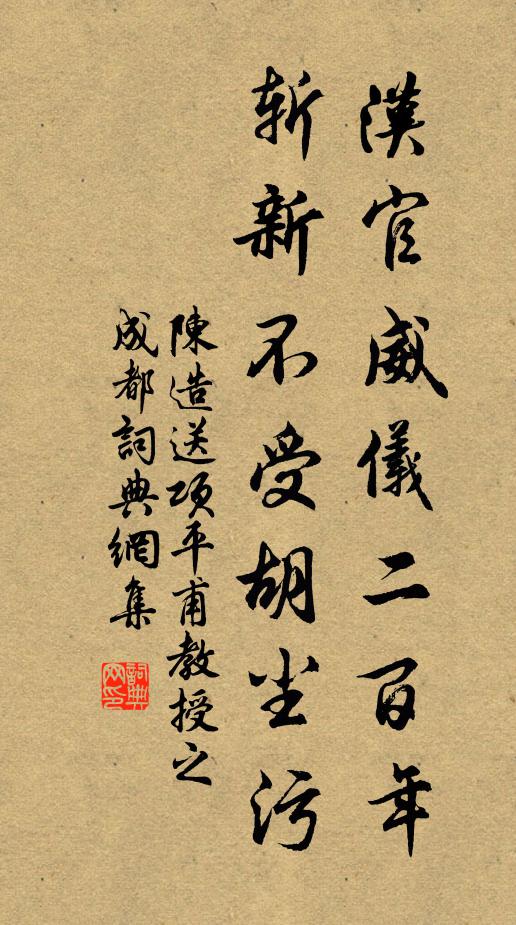 漢官威儀二百年
斬新不受胡尘污
陳造送项平甫教授之
成都詞典網集
詞典
网印